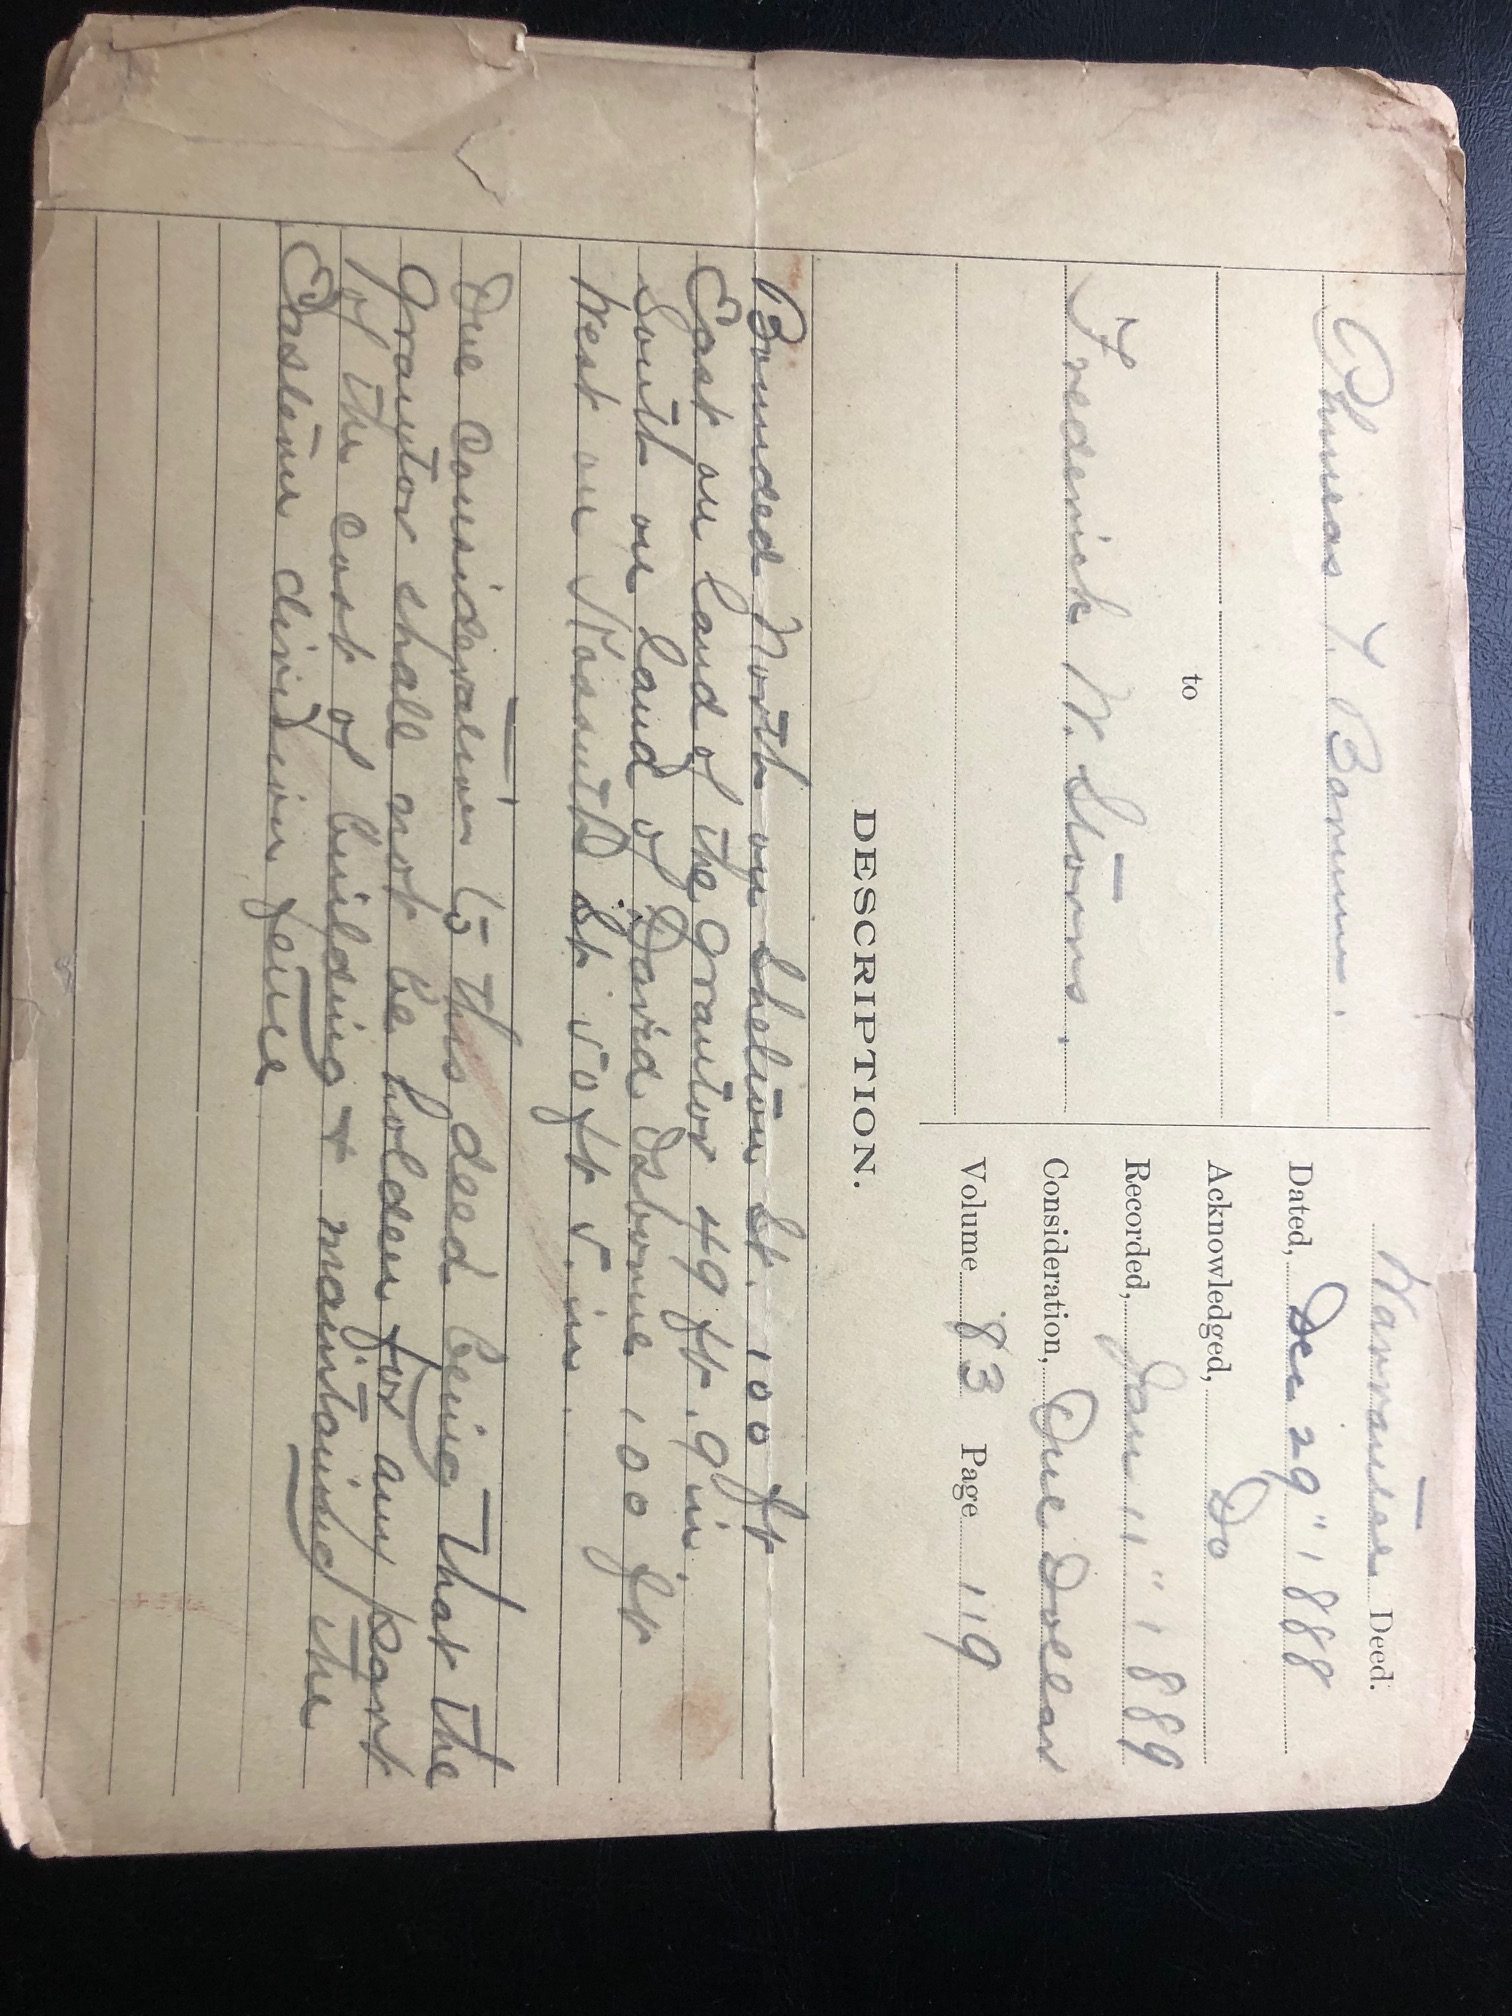 Warrantee Deed.
Phineas T. Barnum.
Dated, Dec 29" 1888
to
Acknowledged, Do
Frederick W. Storms.
Recorded, Jan 11" 1889
Consideration, One Dollar
Volume 83 Page 119
DESCRIPTION.
Bounded North on Shelton St. 100 ft
East on land of the grantor 49 ft. 9 in.
South on land of David Osborne 100 ft
West on Kossuth St 50 ft 5 in.
One consideration to this deed being that the
grantor shall not be holden for any part
of the cost of building + maintaining the
Eastern division fence